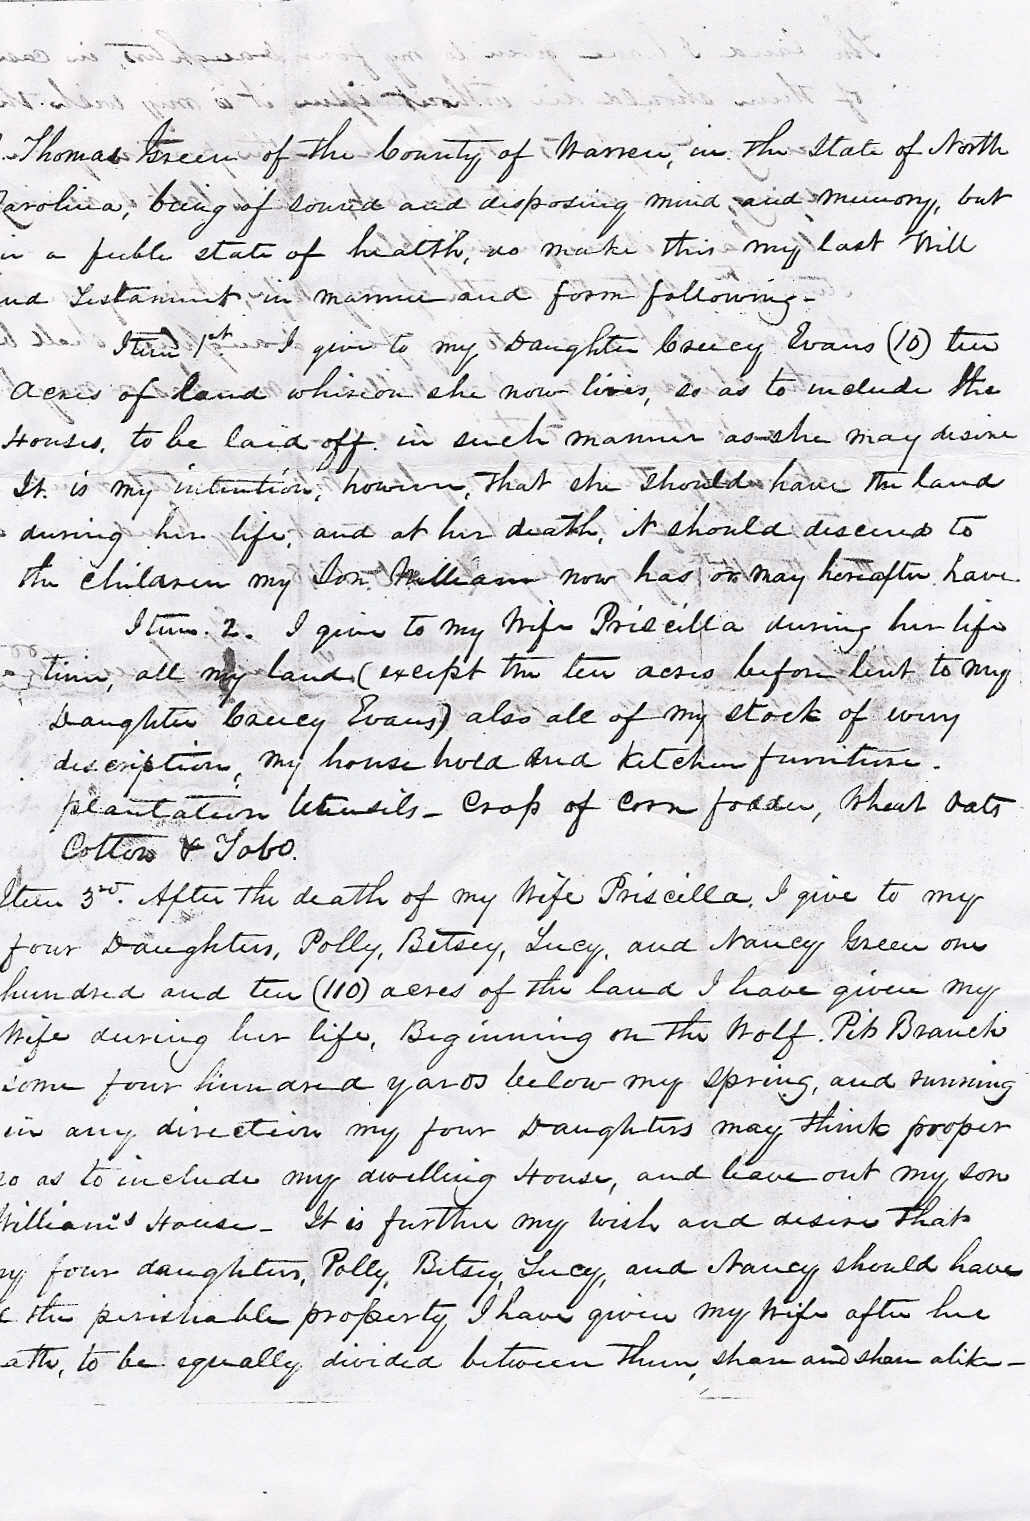 Thomas Green of the County of Warren, in the State of North
Carolina, being of sound and disposing mind, and memory, but
in a feeble state of health, do make this my last Will
and Testament, in manner and form following -
Item 1st I give to my Daughter Creecy Evans (10) ten
Acres of land whereon she now lives, so as to include the
Houses, to be laid off in such manner as she may desire
It is my intention, however, that she should have the land
during her life, and at her death, it should descend to
the children my Son William now has or may hereafter have.
Item. 2. I give to my Wife Priscilla during her life
time, all my land (except the ten acres before lent to my
Daughter Creecy Evans) also all of my stock of every
description, my house hold and Kitchen furniture.
plantation Utensils - Crop of Corn fodder, Wheat Oats
Cotton & Tobo.
Item 3rd. After the death of my Wife Priscilla, I give to my
four Daughters, Polly, Betsey, Lucy, and Nancy Green one
hundred and ten (110) acres of the land I have given my
Wife during her life, Beginning on the Wolf Pit Branch
some four hundred yards below my spring, and running
in any direction my four Daughters may think proper
so as to include my dwelling House, and leave out my son
William's House - It is further my wish and desire that
my four daughters, Polly, Betsey, Lucy, and Nancy should have
the perishable property I have given my Wife after her
death, to be equally divided between them, share and share alike -